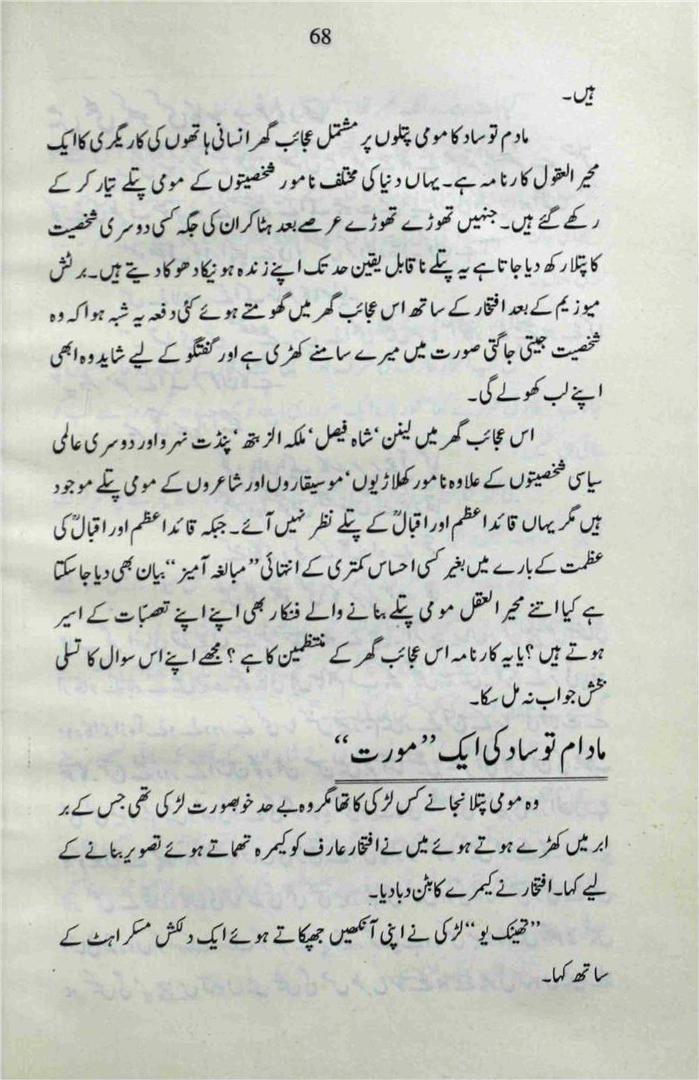 68
ہیں۔
مادم توساد کا مومی پتلوں پر مشتمل عجائب گھر انسانی ہاتھوں کی کاریگری کا ایک
محیر العقول کارنامہ ہے۔ یہاں دنیا کی مختلف نامور شخصیتوں کے مومی پتلے تیار کر کے
رکھے گئے ہیں۔ جنہیں تھوڑے تھوڑے عرصے بعد ہٹا کر ان کی جگہ کسی دوسری شخصیت
کا پتلا رکھ دیا جاتا ہے یہ پتلے ناقابل یقین حد تک اپنے زندہ ہونیکا دھوکا دیتے ہیں۔ برٹش
میوزیم کے بعد افتخار کے ساتھ اس عجائب گھر میں گھومتے ہوئے کئی دفعہ یہ شبہ ہوا کہ وہ
شخصیت جیتی جاگتی صورت میں میرے سامنے کھڑی ہے اور گفتگو کے لیے شاید وہ ابھی
اپنے لب کھولے گی۔
اس عجائب گھر میں لینن‘ شاہ فیصل‘ ملکہ الزبتھ‘ پنڈت نہرو اور دوسری عالمی
سیاسی شخصیتوں کے علاوہ نامور کھلاڑیوں‘ موسیقاروں اور شاعروں کے مومی پتلے موجود
ہیں مگر یہاں قائداعظم اور اقبالؒ کے پتلے نظر نہیں آئے۔ جبکہ قائداعظم اور اقبالؒ کی
عظمت کے بارے میں بغیر کسی احساس کمتری کے انتہائی ”مبالغہ آمیز“ بیان بھی دیا جا سکتا
ہے کیا اتنے محیر العقل مومی پتلے بنانے والے فنکار بھی اپنے اپنے تعصبّات کے اسیر
ہوتے ہیں؟ یا یہ کارنامہ اس عجائب گھر کے منتظمین کا ہے؟ مجھے اپنے اس سوال کا تسلی
بخش جواب نہ مل سکا۔
مادام توساد کی ایک ”مورت“
وہ مومی پتلا نجانے کس لڑکی کا تھا مگر وہ بے حد خوبصورت لڑکی تھی جس کے بر
ابر میں کھڑے ہوتے ہوئے میں نے افتخار عارف کو کیمرہ تھماتے ہوئے تصویر بنانے کے
لیے کہا۔ افتخار نے کیمرے کا بٹن دبا دیا۔
”تھینک یو“ لڑکی نے اپنی آنکھیں جھپکاتے ہوئے ایک دلکش مسکراہٹ کے
ساتھ کہا۔